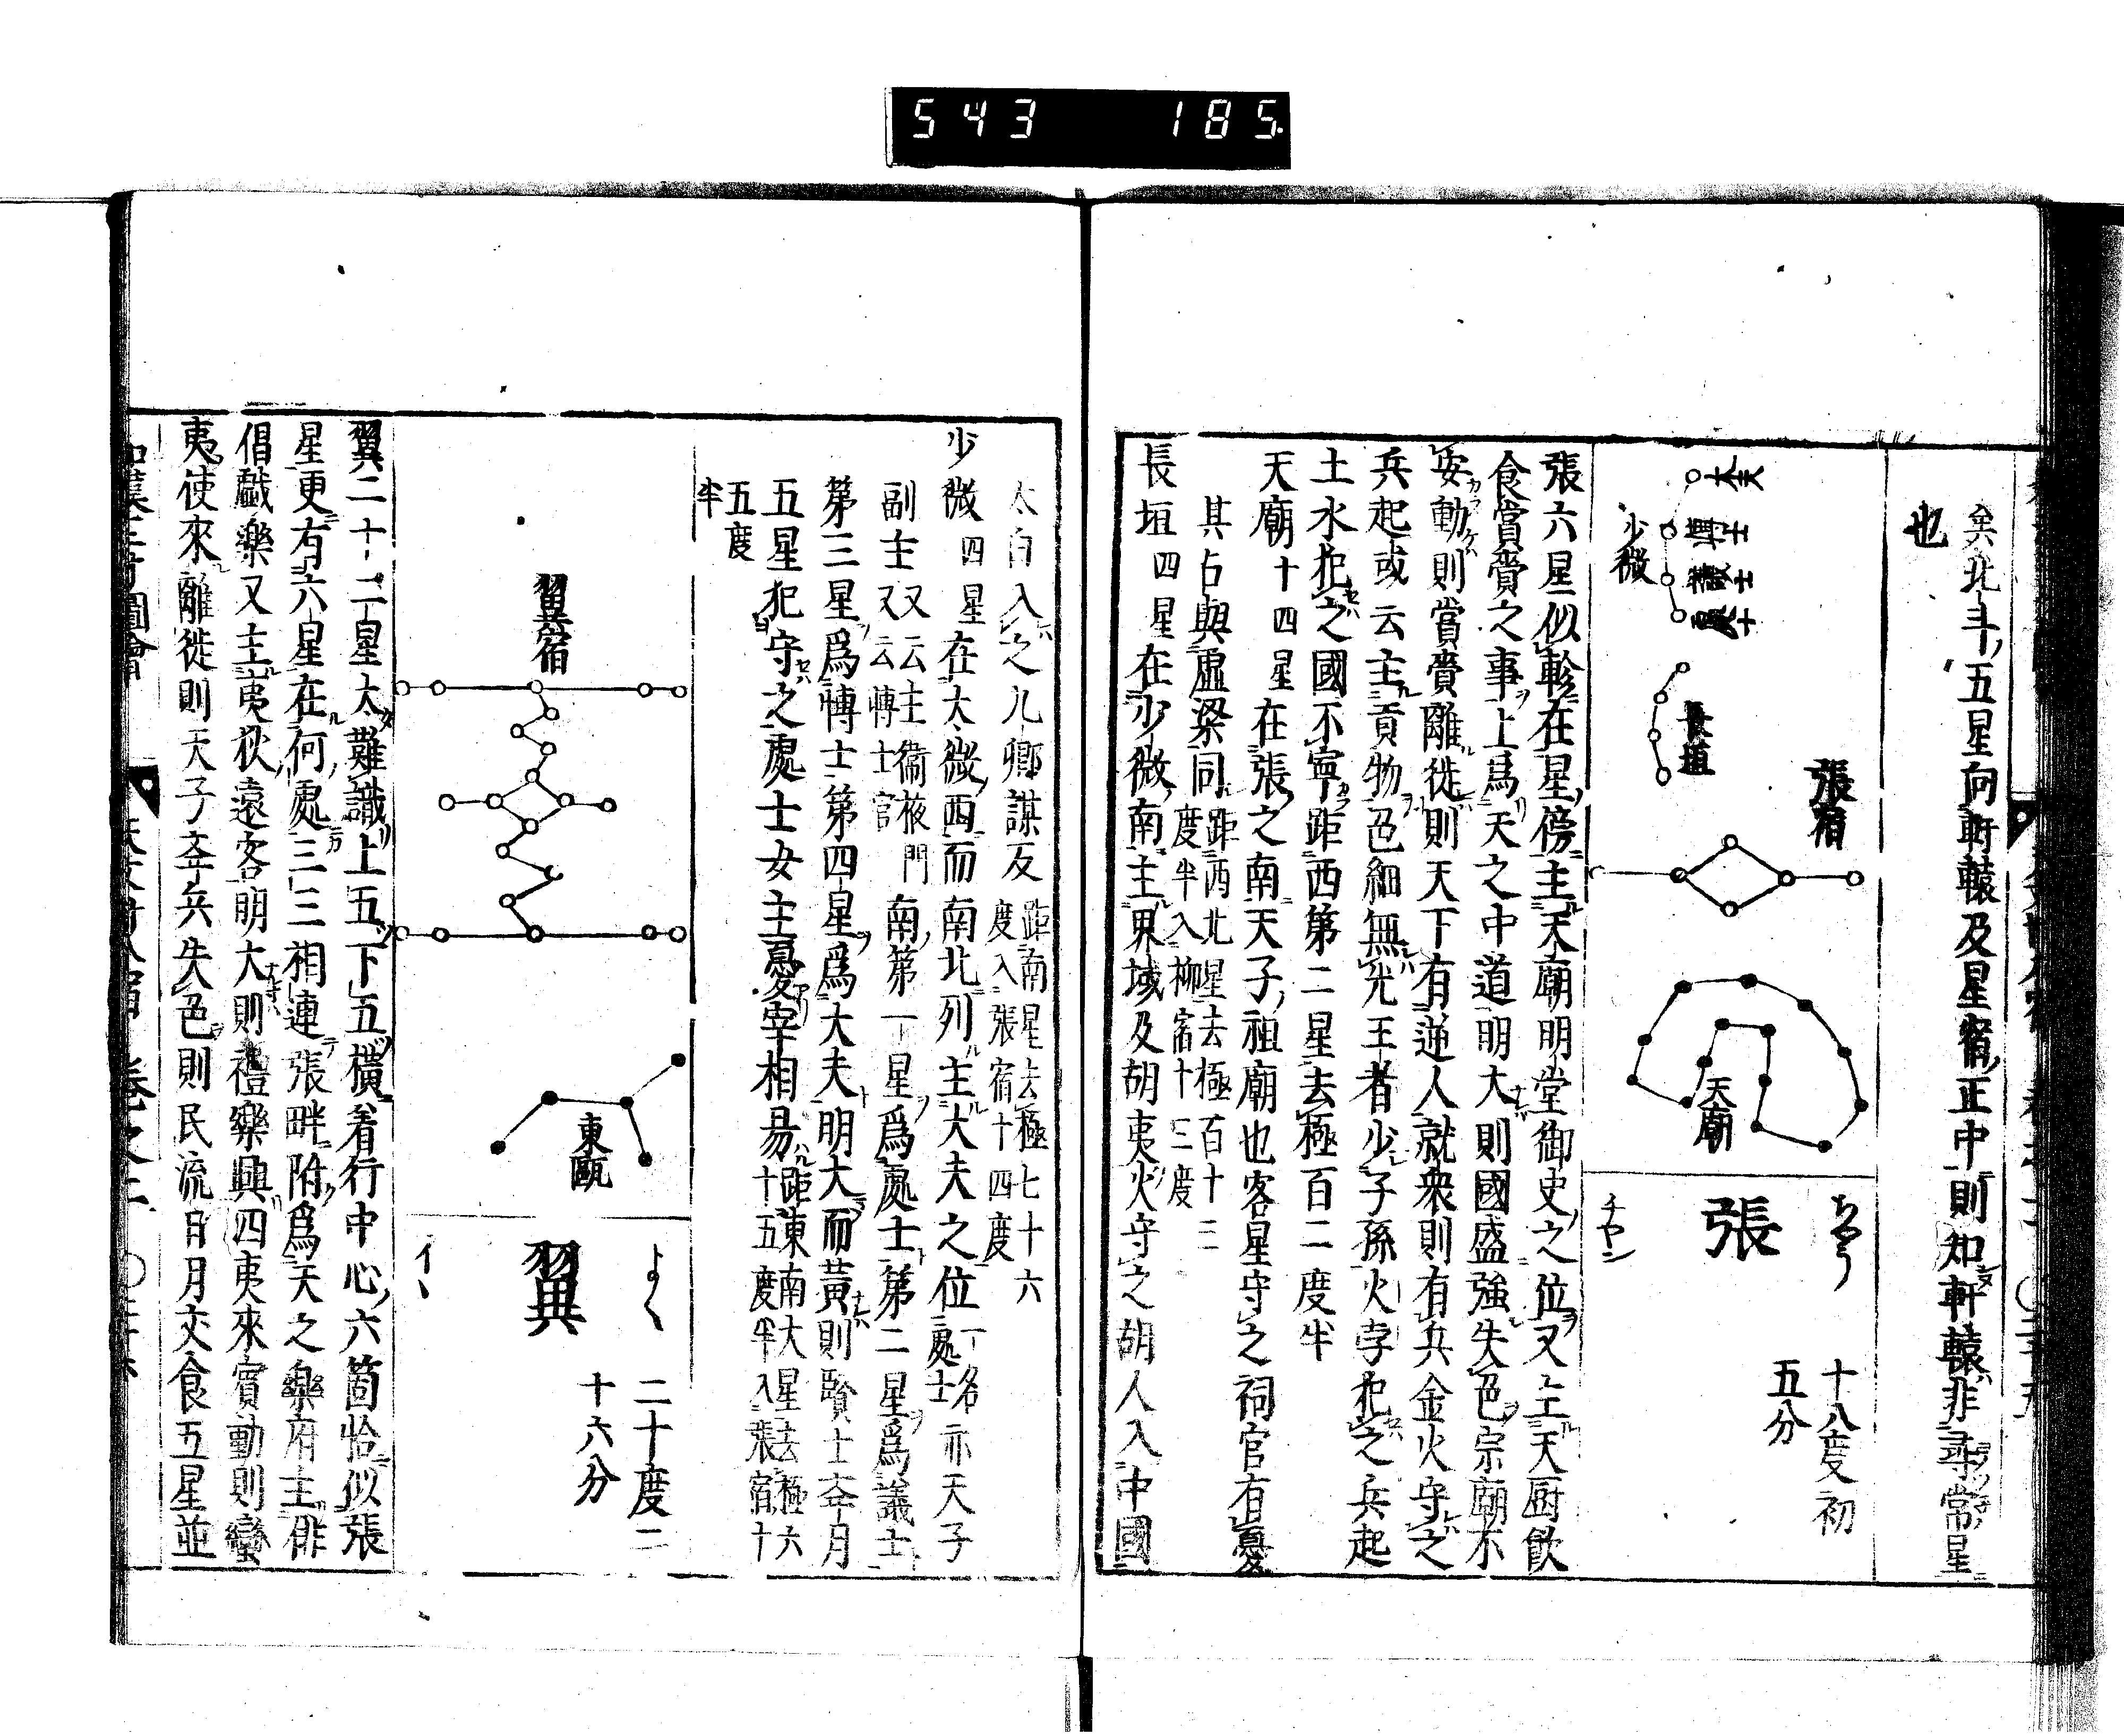 543 185
矣北斗五星向軒轅及星宿正中則知軒轅非尋常星
也
大夫
博士
議士
處士
少微
長垣
張宿
天廟
ちやう
張
チヤン
十八度初
五分
張六星似軫在星傍主天廟明堂御史之位又主天厨飲
食賞賚之事上爲天之中道明大則國盛強失色宗廟不
安動則賞賚離徙則天下有逆人就衆則有兵金火守之
兵起或云主貢物色細無光王者少子孫火孛犯之兵起
土水犯之國不寧距西第二星去極百二度半
天廟十四星在張之南天子祖廟也客星守之祠官有憂
其占與虛梁同距西北星去極百十三
度半入柳宿十三度
長垣四星在少微南主界域及胡夷火守之胡人入中國
太白入之九卿謀反距南星去極七十六
度入張宿十四度
少微四星在太微西而南北列主大夫之位一名處士亦天子
副士又云主衞掖門
又云博士官
南第一星爲處士第二星爲議士
第三星爲博士第四星爲大夫明大而黃則賢士奉月
五星犯守之處士女主憂宰相易距東南大星去極六
十五度半入張宿十
五度
半
翼宿
東甌
よく
翼
イヽ
二十度二
十六分
翼二十二星太難識上五下五橫着行中心六箇恰似張
星更有六星在何處三三相連張畔附爲天之樂府主俳
倡戲樂又主夷狄遠客明大則禮樂興四夷來賓動則蠻
夷使來離徙則天子弄兵失色則民流日月交食五星並
和漢三才圖會 天文廿八宿 卷之二